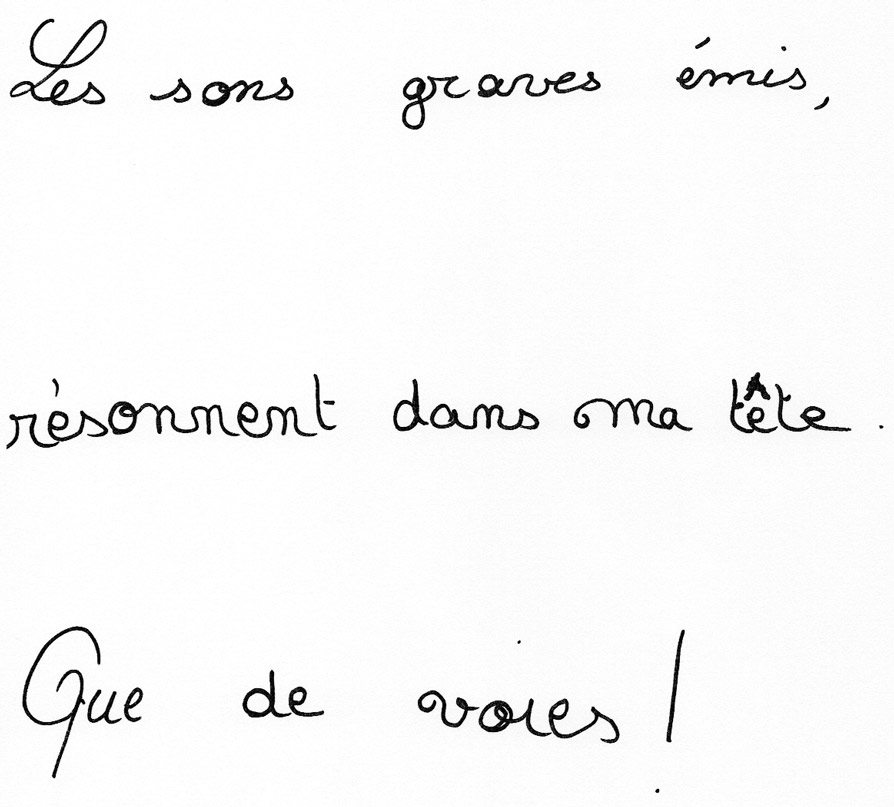 Les sons graves émis,
résonnent dans ma tête.
Que de voies !